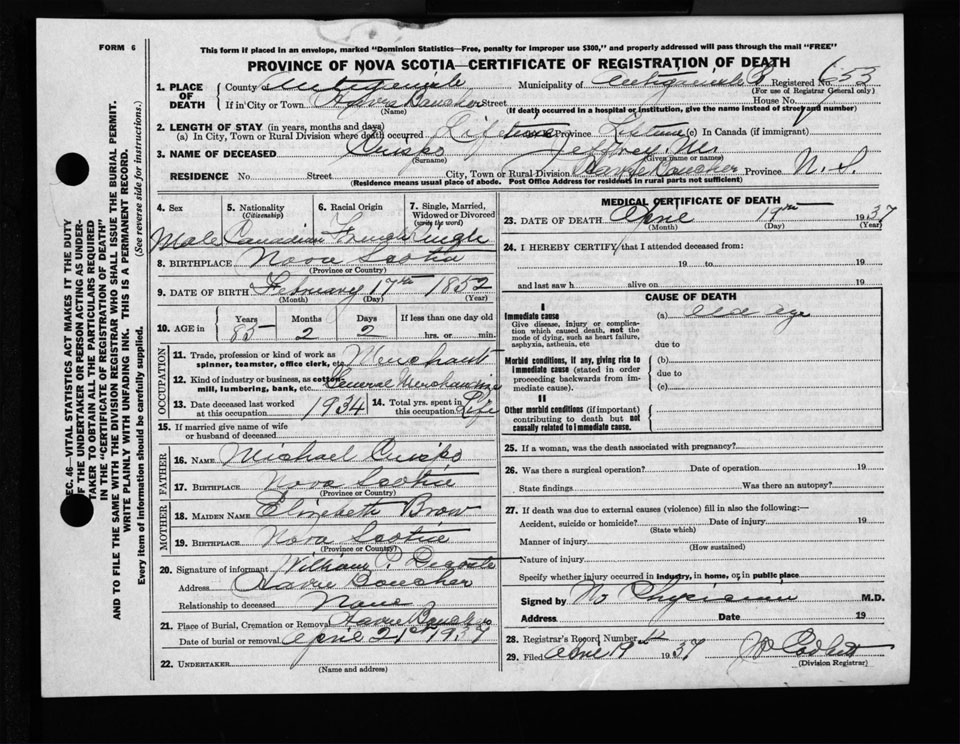 FORM 6
This form if placed in an envelope, marked "Dominion Statistics—Free, penalty for improper use $300," and properly addressed will pass through the mail "FREE"
PROVINCE OF NOVA SCOTIA—CERTIFICATE OF REGISTRATION OF DEATH
1. PLACE OF DEATH
County Antigonish Municipality of Antigonish Registered No. 653
(For use of Registrar General only)
If in City or Town Havre Boucher Street House No.
(Name) (If death occurred in a hospital or institution, give the name instead of street and number)
2. LENGTH OF STAY (in years, months and days)
(a) In City, Town or Rural Division where death occurred Lifetime Province Lifetime (c) In Canada (if immigrant)
3. NAME OF DECEASED Crispo Jeffrey
(Surname) (Given name or names)
RESIDENCE No. Street City, Town or Rural Division Havre Boucher Province N.S.
(Residence means usual place of abode. Post Office Address for residents in rural parts not sufficient)
4. Sex Male
5. Nationality (Citizenship) Canadian
6. Racial Origin French
7. Single, Married, Widowed or Divorced (write the word) Single
8. BIRTHPLACE Nova Scotia
(Province or Country)
9. DATE OF BIRTH February 17th 1852
(Month) (Day) (Year)
10. AGE in Years 85 Months 2 Days 2 If less than one day old hrs. or min.
OCCUPATION
11. Trade, profession or kind of work as spinner, teamster, office clerk, etc. Merchant
12. Kind of industry or business, as cotton mill, lumbering, bank, etc. General Merchandise
13. Date deceased last worked at this occupation 1934
14. Total yrs. spent in this occupation Life
15. If married give name of wife or husband of deceased
FATHER
16. NAME Michael Crispo
17. BIRTHPLACE Nova Scotia
(Province or Country)
MOTHER
18. MAIDEN NAME Elizabeth Brow
19. BIRTHPLACE Nova Scotia
(Province or Country)
20. Signature of informant William P. Decoste
Address Havre Boucher
Relationship to deceased None
21. Place of Burial, Cremation or Removal Havre Boucher
Date of burial or removal April 21st 1937
22. UNDERTAKER
(Name and address)
MEDICAL CERTIFICATE OF DEATH
23. DATE OF DEATH April 19th 1937
(Month) (Day) (Year)
24. I HEREBY CERTIFY that I attended deceased from:
19 to 19
and last saw h alive on 19
CAUSE OF DEATH
I
Immediate cause (a) old age
Give disease, injury or complication which caused death, not the mode of dying, such as heart failure, asphyxia, asthenia, etc
due to
Morbid conditions, if any, giving rise to immediate cause (stated in order proceeding backwards from immediate cause).
(b)
due to
(c)
II
Other morbid conditions (if important) contributing to death but not causally related to immediate cause.
25. If a woman, was the death associated with pregnancy?
26. Was there a surgical operation? Date of operation 19
State findings Was there an autopsy?
27. If death was due to external causes (violence) fill in also the following:—
Accident, suicide or homicide? Date of injury 19
(State which)
Manner of injury
(How sustained)
Nature of injury
Specify whether injury occurred in industry, in home, or in public place
Signed by No Physician M.D.
Address Date 19
28. Registrar's Record Number
29. Filed April 19th 1937
(Division Registrar)
SEC. 46—VITAL STATISTICS ACT MAKES IT THE DUTY
OF THE UNDERTAKER OR PERSON ACTING AS UNDER-
TAKER TO OBTAIN ALL THE PARTICULARS REQUIRED
IN THE "CERTIFICATE OF REGISTRATION OF DEATH"
AND TO FILE THE SAME WITH THE DIVISION REGISTRAR WHO SHALL ISSUE THE BURIAL PERMIT.
WRITE PLAINLY WITH UNFADING INK. THIS IS A PERMANENT RECORD.
Every item of information should be carefully supplied. (See reverse side for instructions.)